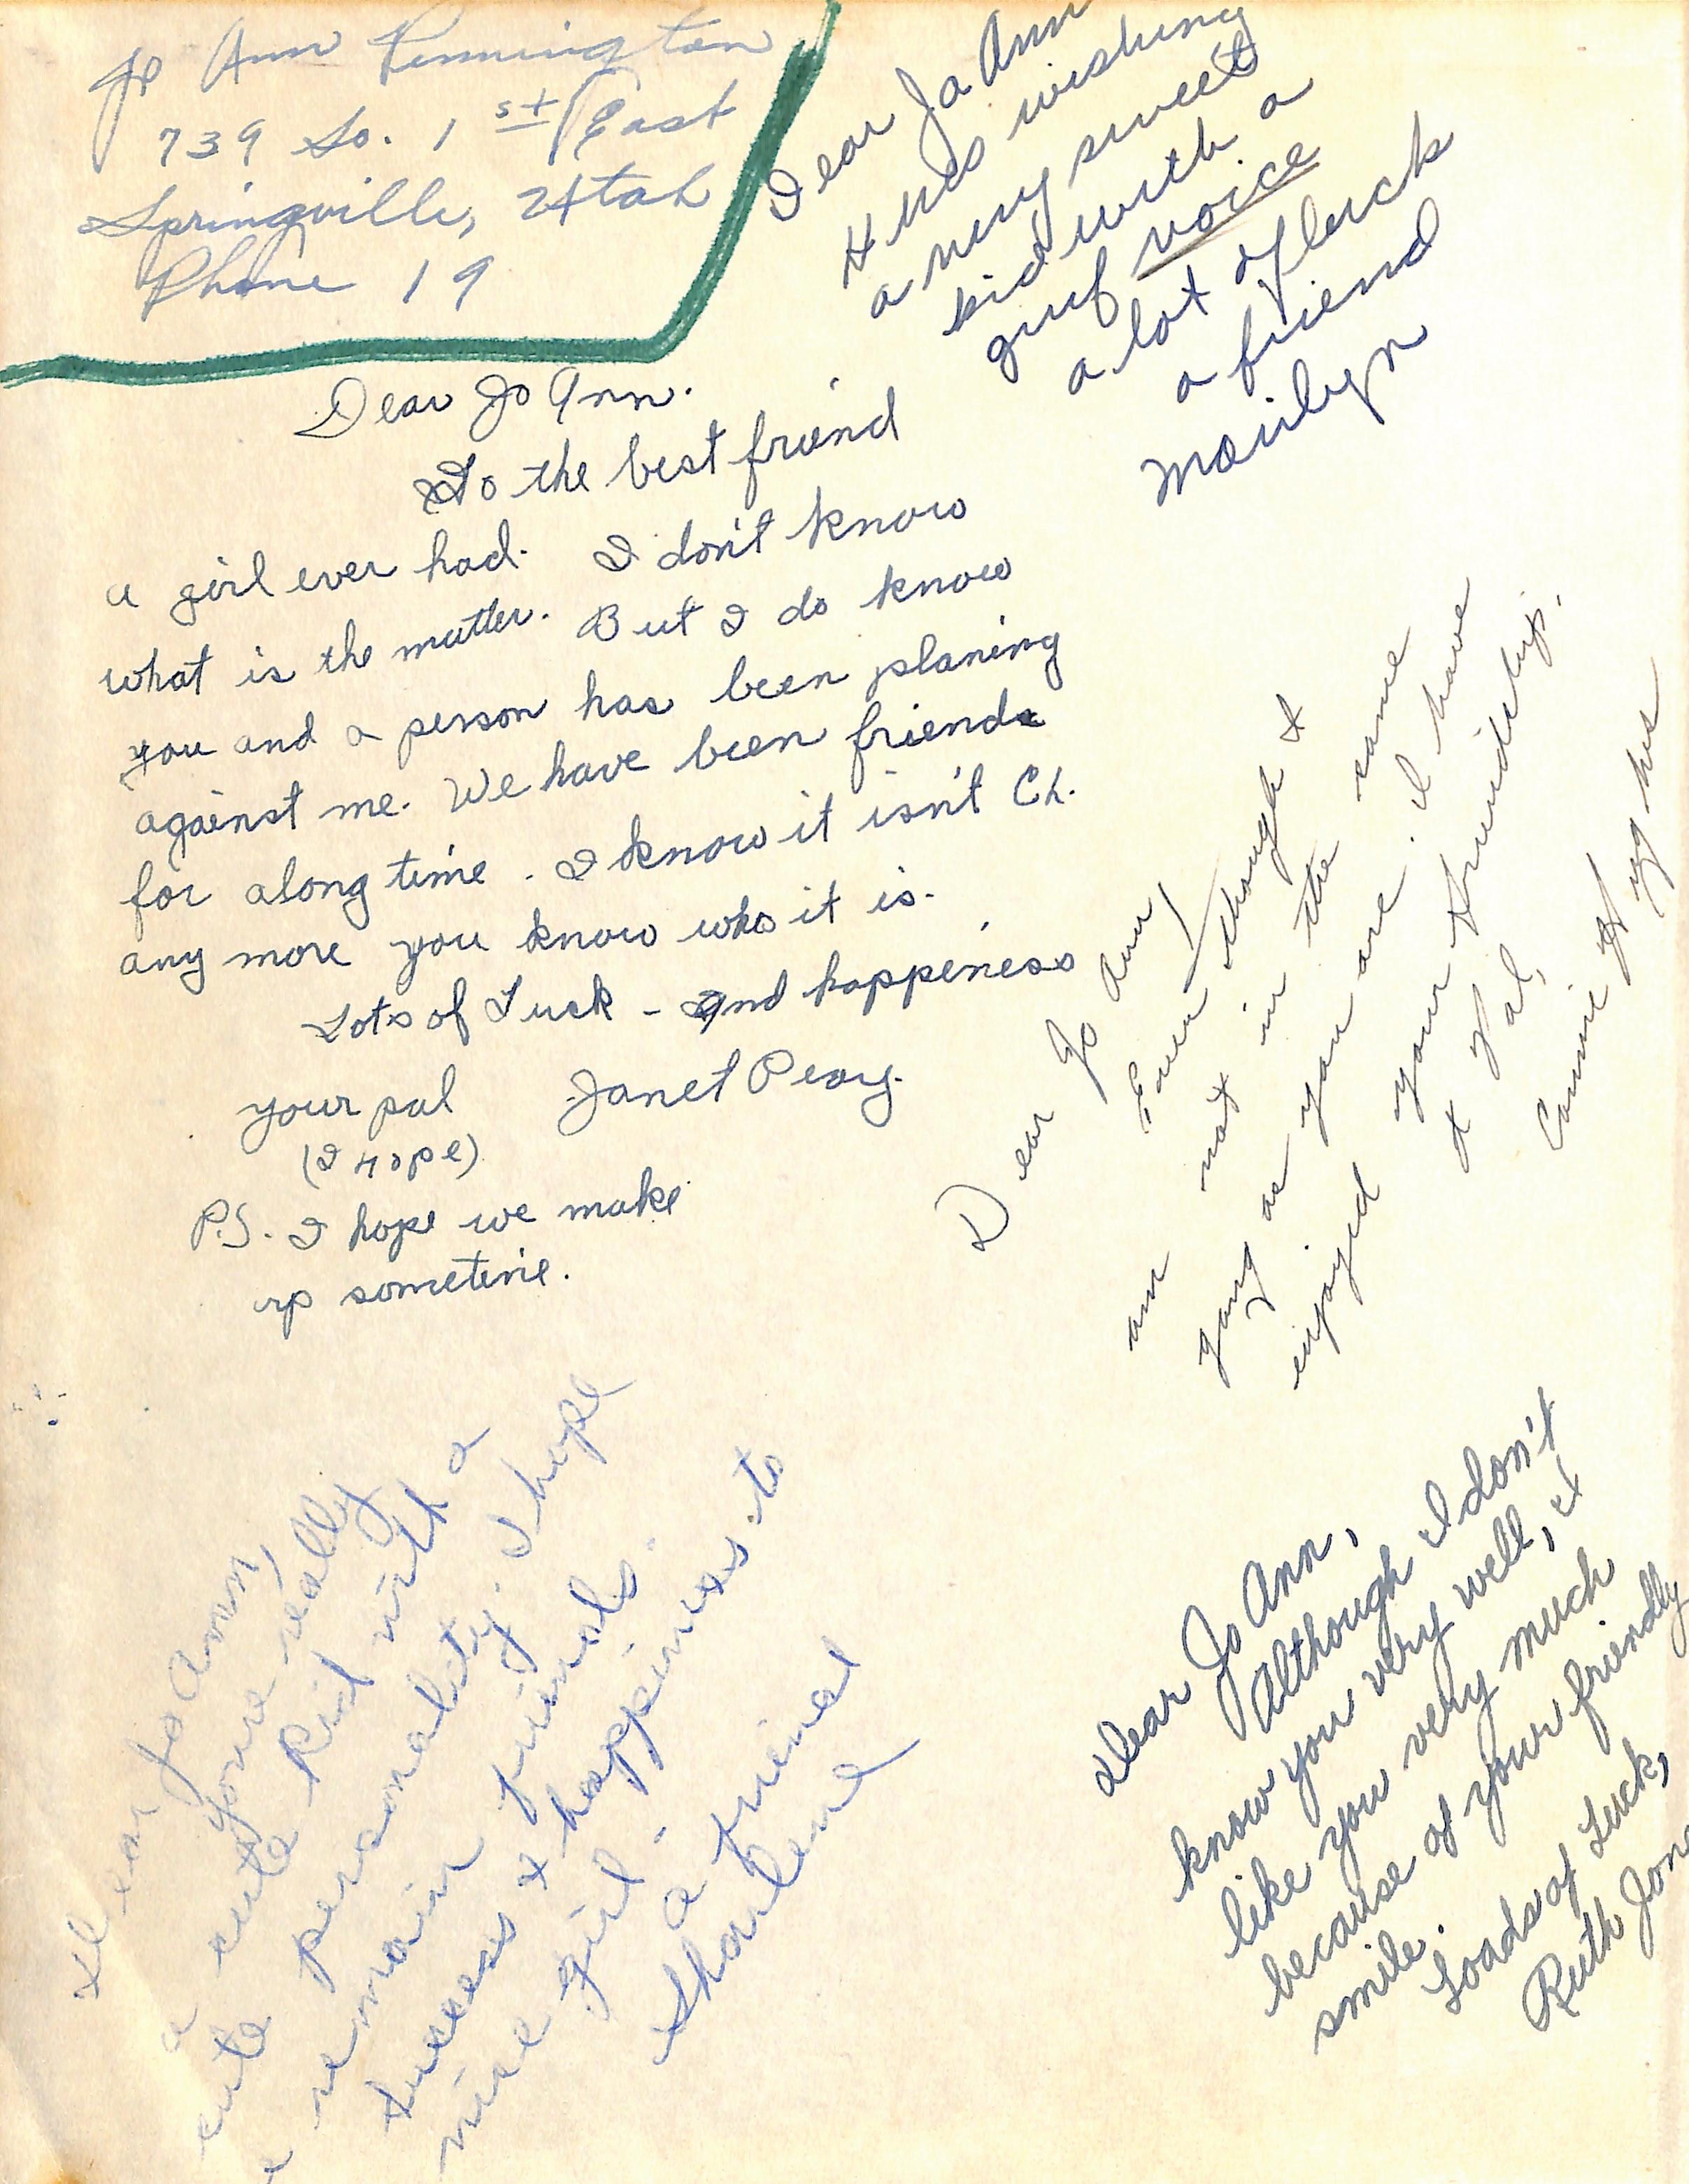 Jo Ann Pennington
739 So. 1st East
Springville, Utah
Phone 19
Dear Jo Ann
Heres wishing
a very sweet
kid with a
gruf voice
a lot of luck
a friend
Marilyn
Dear Jo Ann.
To the best friend
a girl ever had. I don't know
what is the matter. But I do know
you and a person has been planing
against me. We have been friends
for along time. I know it isn't Ch.
any more you know who it is.
Lots of Luck - and happeness
your pal Janet Peay.
(I Hope)
P.S. I hope we make
up sometime.
Dear Jo Ann,
Even though I
am not in the same
gang as you are. I have
enjoyed your friendship.
A Pal,
Connie
Dear Jo Ann,
Although I don't
know you very well, I
like you very much
because of your friendly
smile.
Loads of Luck,
Ruth Jon
Dear Jo Ann,
your really
a cute kid with a
cute personality. I hope
we remain friends.
Success & happiness to
nice girl.
a friend
Sharlene